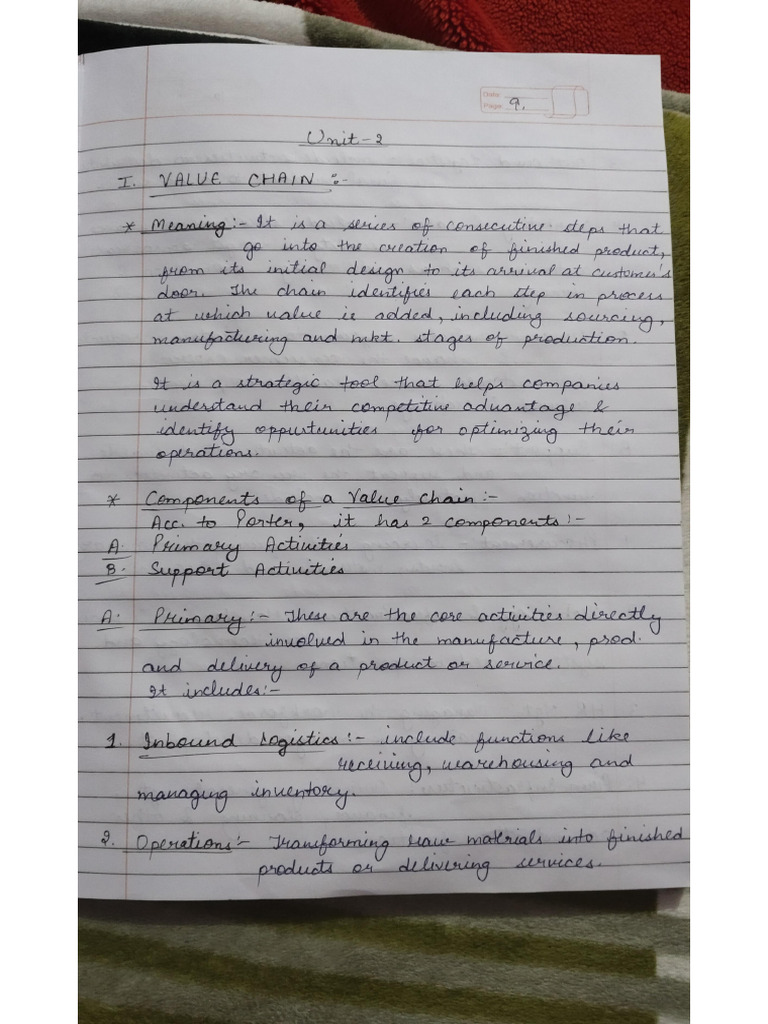 Date:
Page: 9.
Unit-2
I. VALUE CHAIN :-
* Meaning:- It is a series of consecutive steps that
go into the creation of finished product,
from its initial design to its arrival at customer's
door. The chain identifies each step in process
at which value is added, including sourcing,
manufacturing and mkt. stages of production.
It is a strategic tool that helps companies
understand their competitive advantage &
identify oppurtunities for optimizing their
operations.
* Components of a Value Chain:-
Acc. to Porter, it has 2 components:-
A. Primary Activities
B. Support Activities
A. Primary:- These are the core activities directly
involved in the manufacture, prod.
and delivery of a product or service.
It includes:-
1. Inbound Logistics:- include functions like
receiving, warehousing and
managing inventory.
2. Operations:- Transforming raw materials into finished
products or delivering services.